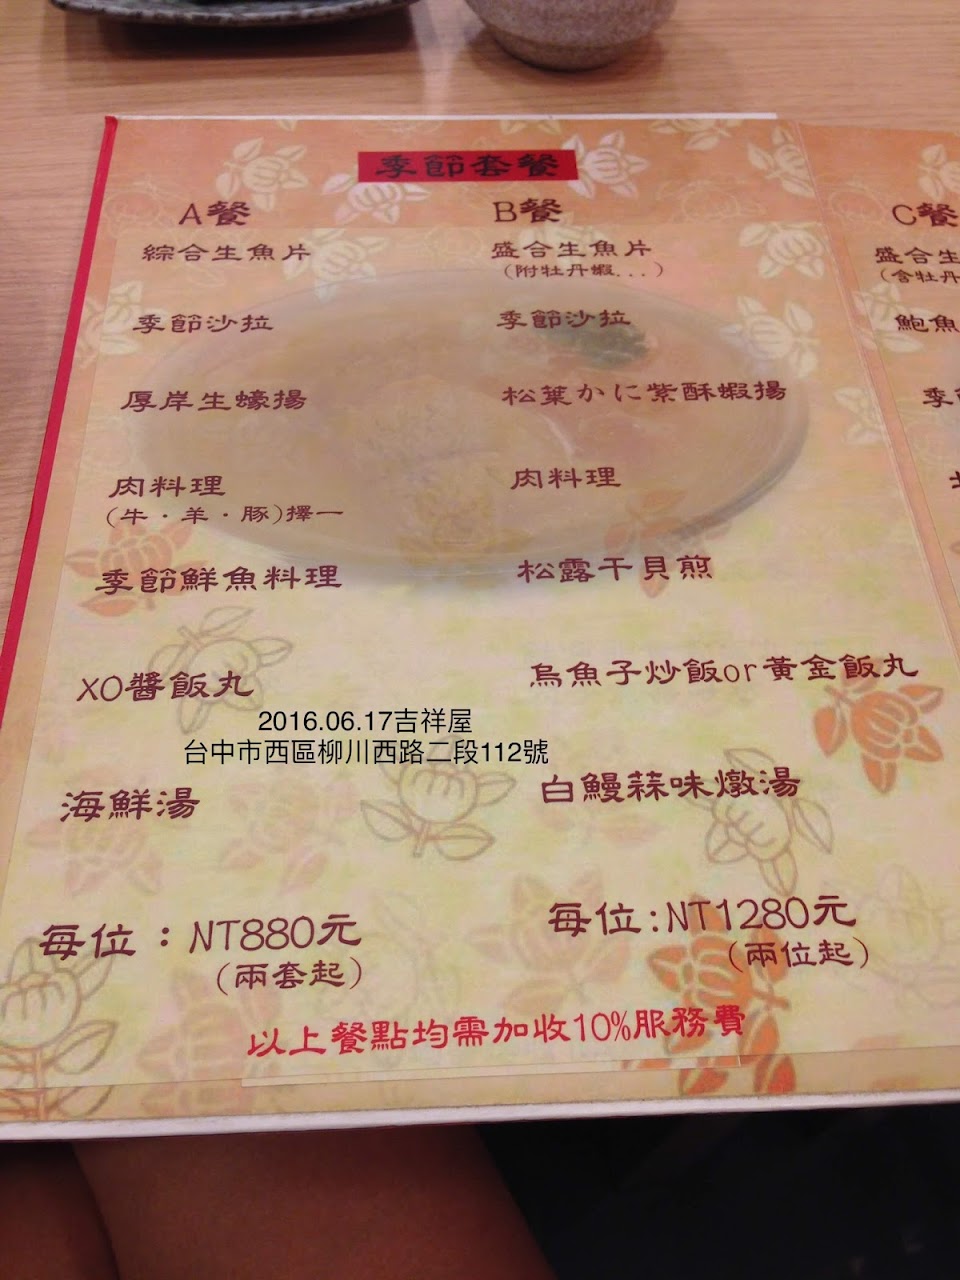 季節套餐
A餐
綜合生魚片
季節沙拉
厚岸生蠔揚
肉料理
(牛·羊·豚)擇一
季節鮮魚料理
XO醬飯丸
海鮮湯
每位：NT880元
(兩套起)
B餐
盛合生魚片
(附牡丹蝦...)
季節沙拉
松葉かに紫酥蝦揚
肉料理
松露干貝煎
烏魚子炒飯or黃金飯丸
白鰻蒜味燉湯
每位:NT1280元
(兩位起)
C餐
盛合生
(含牡丹
鮑魚
季
以上餐點均需加收10%服務費
2016.06.17吉祥屋
台中市西區柳川西路二段112號